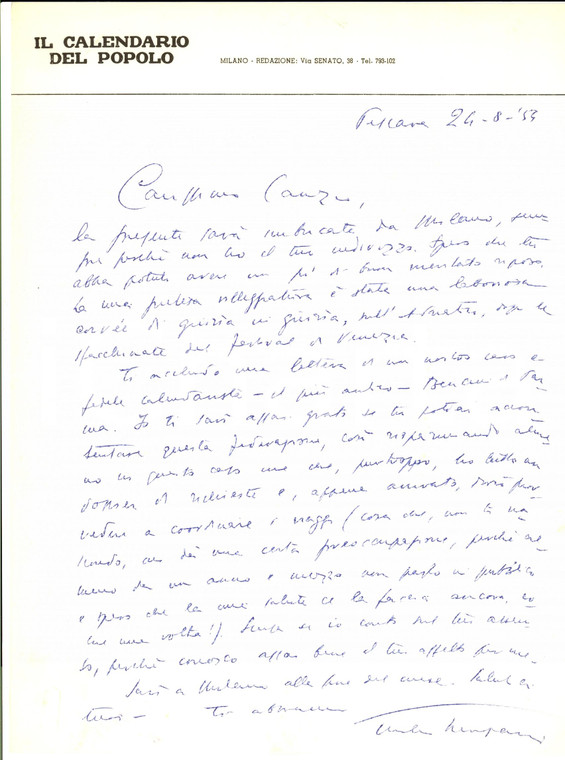 IL CALENDARIO
DEL POPOLO
MILANO - REDAZIONE: Via SENATO, 38 - Tel. 793-102
Pescara 24-8-'54
Carissimo Canzio,
la presente sarà imbucata da Milano, 
pur perché non ho il tuo indirizzo. Spero che tu
abbia potuto avere un po' di buon meritato riposo.
La mia pretesa villeggiatura è stata una laboriosa
corvée di giuria in giuria, sull'Adriatico, dopo le
sfacchinate del festival di Venezia.
Ti accludo una lettera di un nostro caro e
fedele calendarista - il più antico - Bencini di Par-
ma. Io ti sarò assai grato se tu potrai accon-
tentare questa Federazione, così risparmiando alme-
no in questo caso me che, purtroppo, ho tutto un
dossier di richieste e, appena arrivato, dovrò prov-
vedere a coordinare i viaggi (cosa che, non ti na-
scondo, mi dà una certa preoccupazione, perché al-
meno da un anno e mezzo non parlo in pubblico
e spero che la mia salute ce la faccia ancora, 
una volta!). Scusa se io conto sul tuo assen-
so, perché conosco assai bene il tuo affetto per me.
Sarò a Milano alla fine del mese. Saluti ai
tuoi - Ti abbraccio